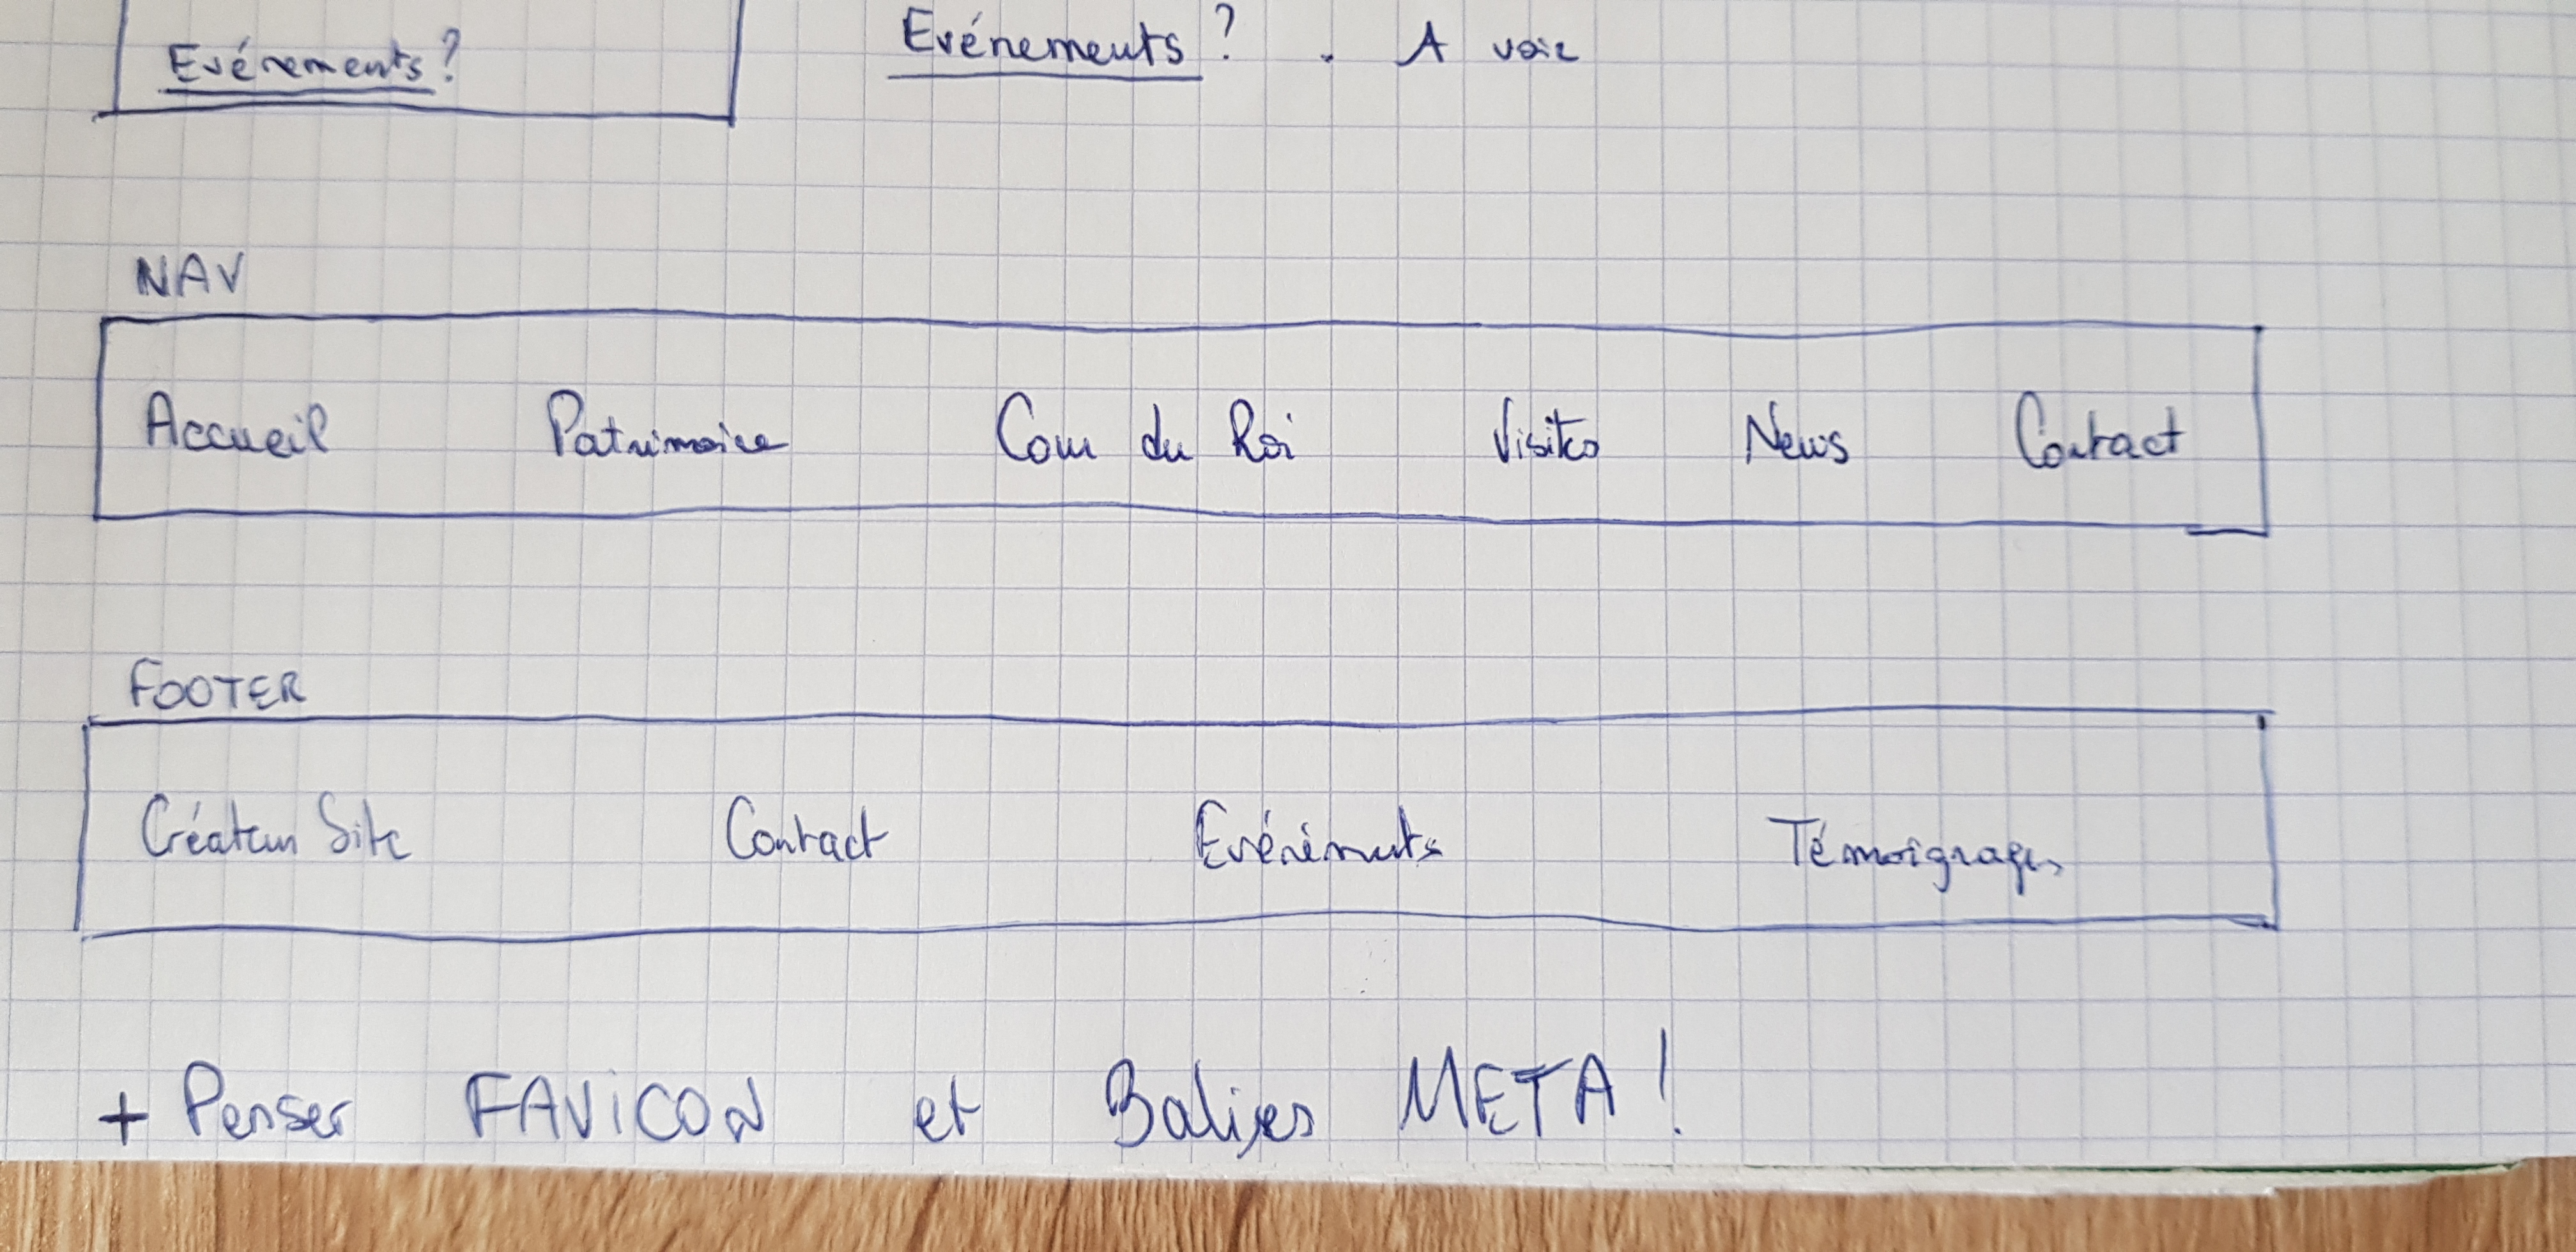 Evénements ? Evénements ? . A voir
NAV
Accueil Patrimoine Cour du Roi Visites News Contact
FOOTER
Créateur Site Contact Evénéments Témoignages
+ Penser FAVICON et Balises META !